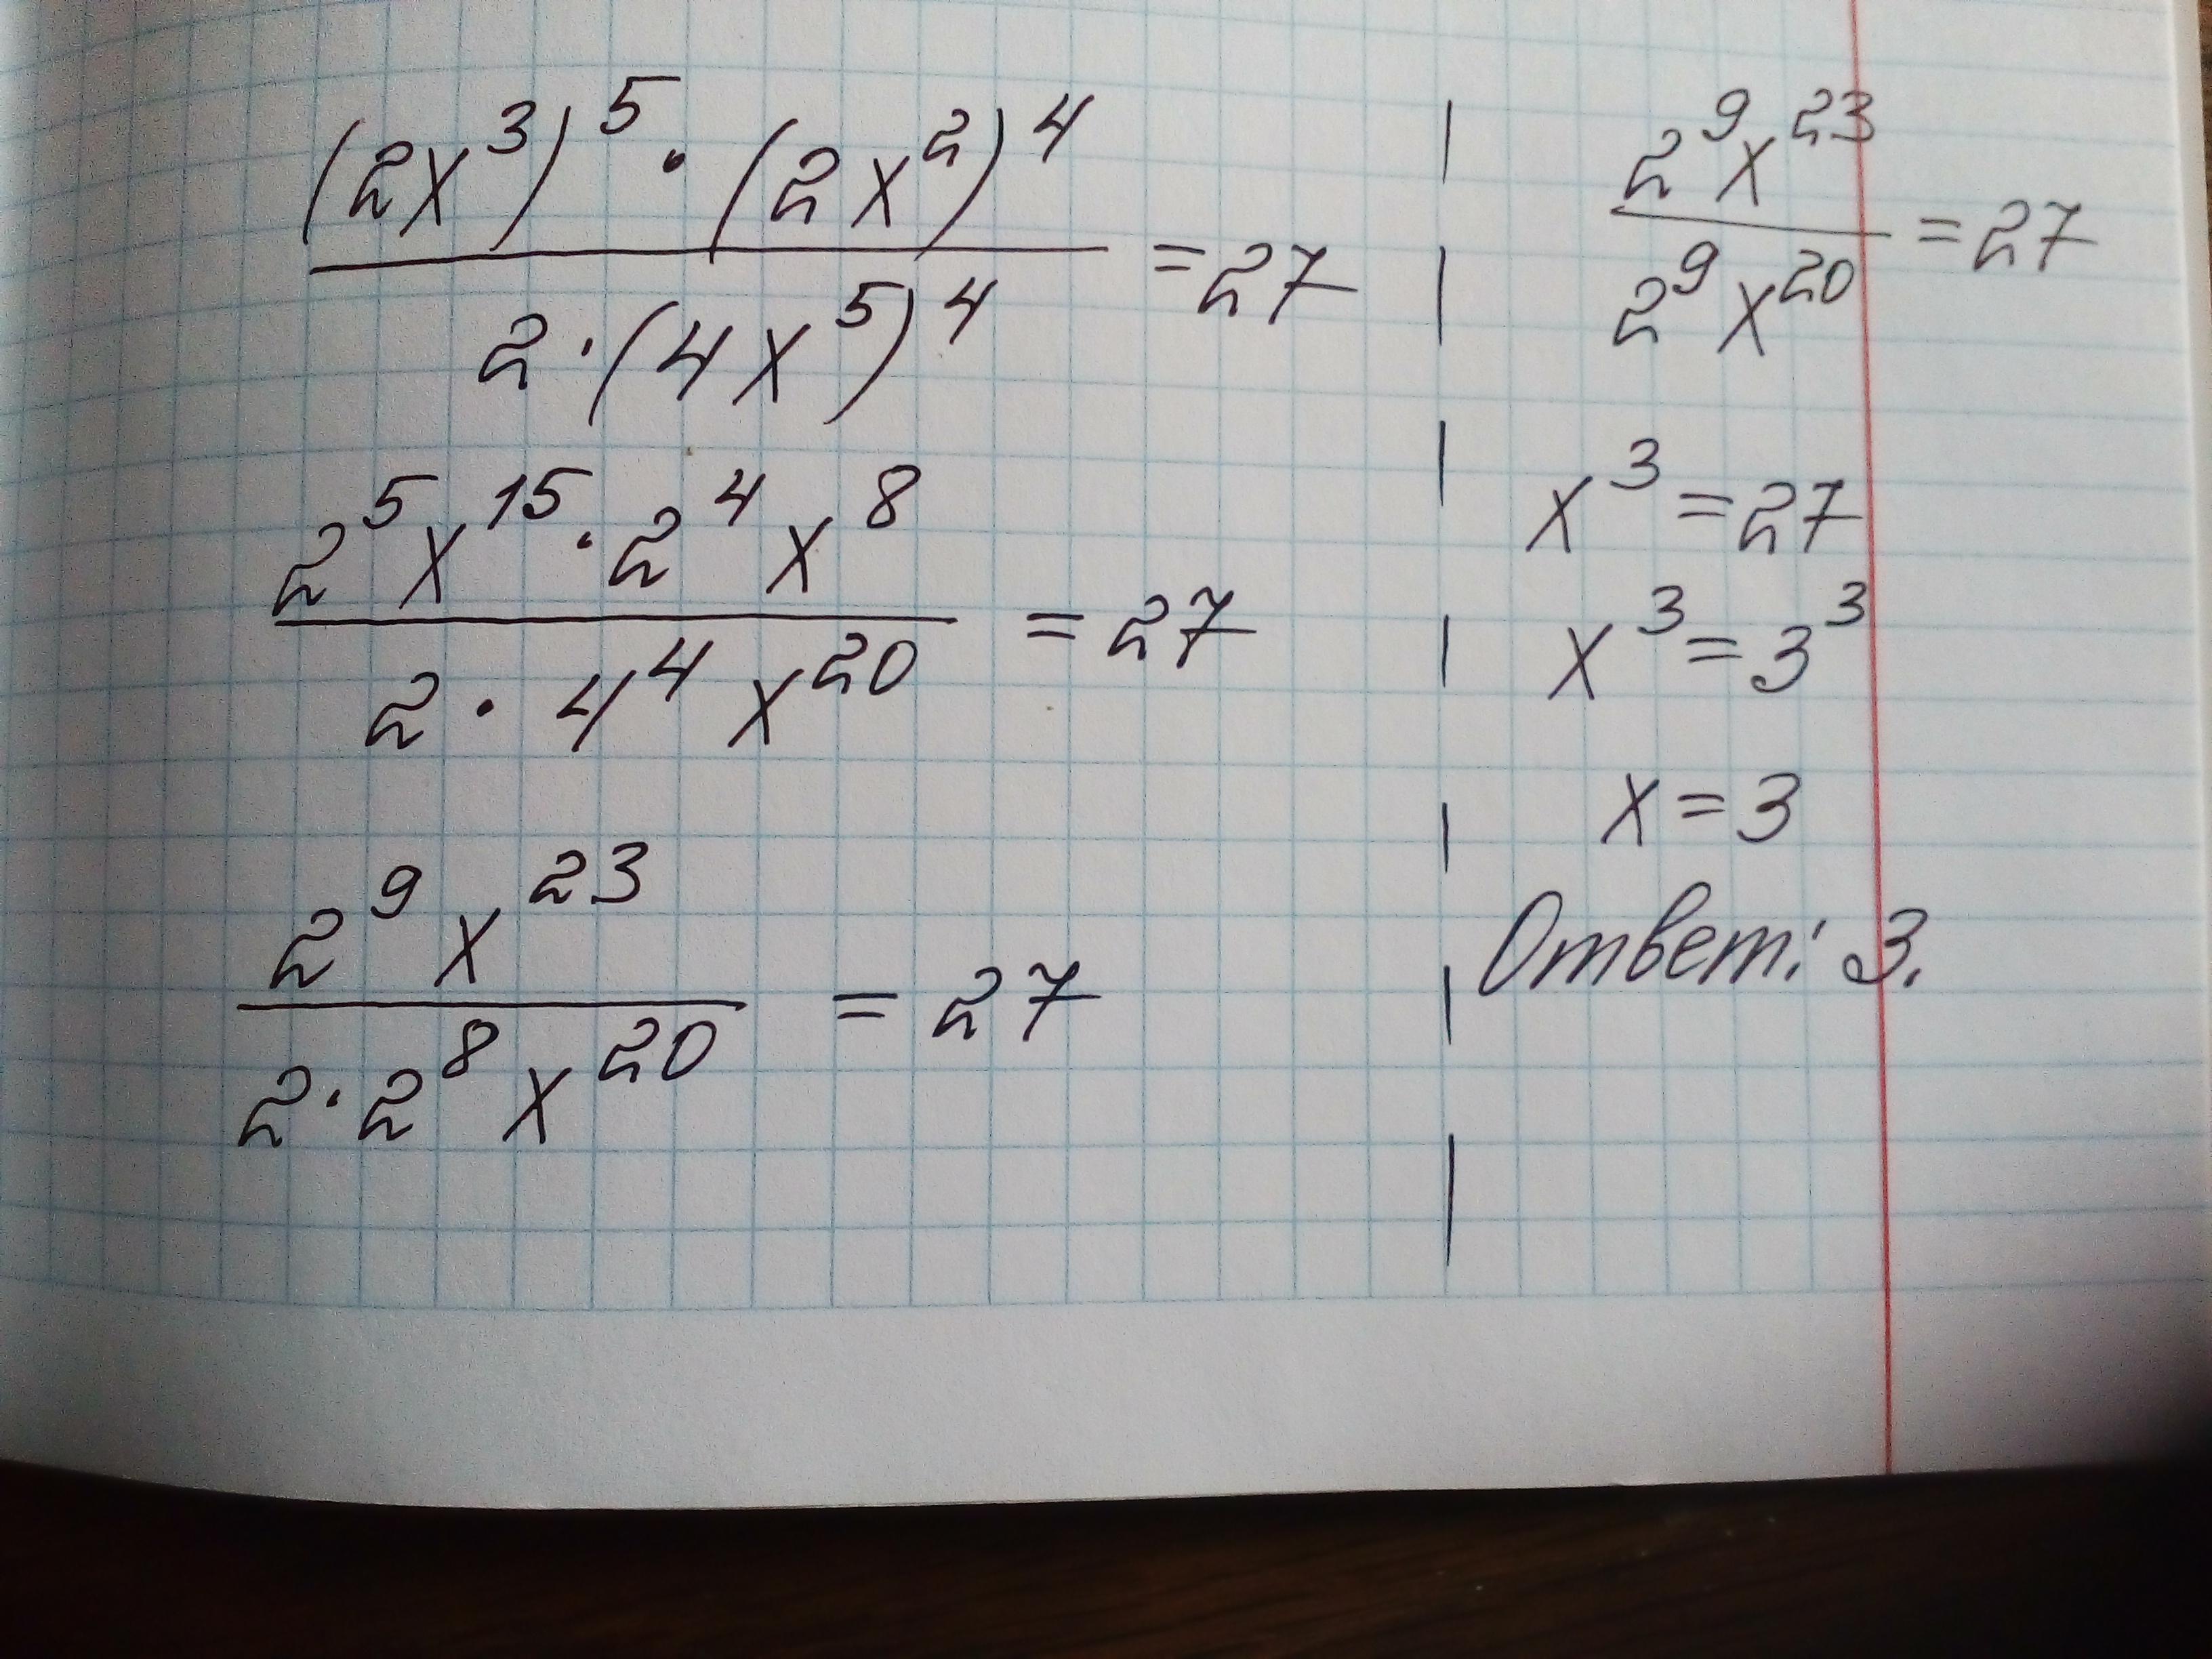 (2x³)⁵ · (2x²)⁴ / 2 · (4x⁵)⁴ = 27
2⁵x¹⁵ · 2⁴x⁸ / 2 · 4⁴x²⁰ = 27
2⁹x²³ / 2 · 2⁸x²⁰ = 27
2⁹x²³ / 2⁹x²⁰ = 27
x³ = 27
x³ = 3³
x = 3
Ответ: 3.